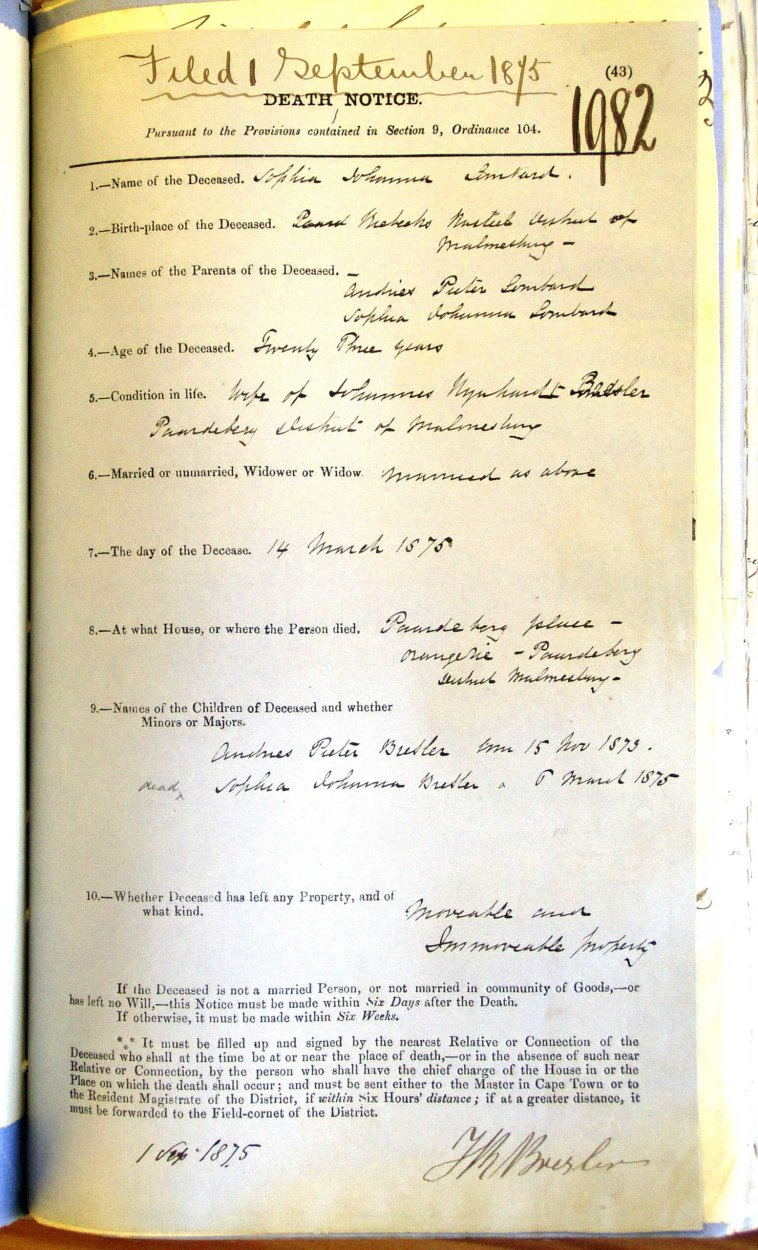 Filed 1 September 1875
(43)
DEATH NOTICE.
1982
Pursuant to the Provisions contained in Section 9, Ordinance 104.
1.—Name of the Deceased. Sophia Johanna Lombard.
2.—Birth-place of the Deceased. Riebeeks Kasteel District of
Malmesbury –
3.—Names of the Parents of the Deceased. –
Andries Pieter Lombard
Sophia Johanna Lombard
4.—Age of the Deceased. Twenty Three years
5.—Condition in life. Wife of Johannes Wynhardt Bresler
Paardeberg District of Malmesbury
6.—Married or unmarried, Widower or Widow. Married as above
7.—The day of the Decease. 14 March 1875
8.—At what House, or where the Person died. Paardeberg place –
– Paardeberg
District Malmesbury –
9.—Names of the Children of Deceased and whether
Minors or Majors.
Andries Pieter Bresler 15 Nov 1873.
dead Sophia Johanna Bresler " 6 March 1875
10.—Whether Deceased has left any Property, and of
what kind. Moveable and
Immoveable property
If the Deceased is not a married Person, or not married in community of Goods,—or
has left no Will,—this Notice must be made within Six Days after the Death.
If otherwise, it must be made within Six Weeks.
*** It must be filled up and signed by the nearest Relative or Connection of the
Deceased who shall at the time be at or near the place of death,—or in the absence of such near
Relative or Connection, by the person who shall have the chief charge of the House in or the
Place on which the death shall occur; and must be sent either to the Master in Cape Town or to
the Resident Magistrate of the District, if within Six Hours' distance; if at a greater distance, it
must be forwarded to the Field-cornet of the District.
1 Sep. 1875
Bresler